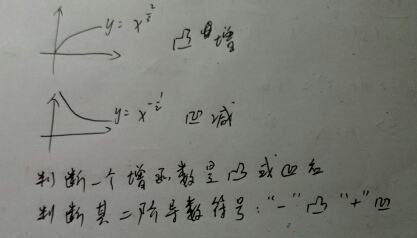 y = x^{\frac{1}{2}} 凸增
y = x^{-\frac{1}{2}} 凹减
判断一个增函数是凸或凹名
判断其二阶导数符号:"-"凸"+"凹